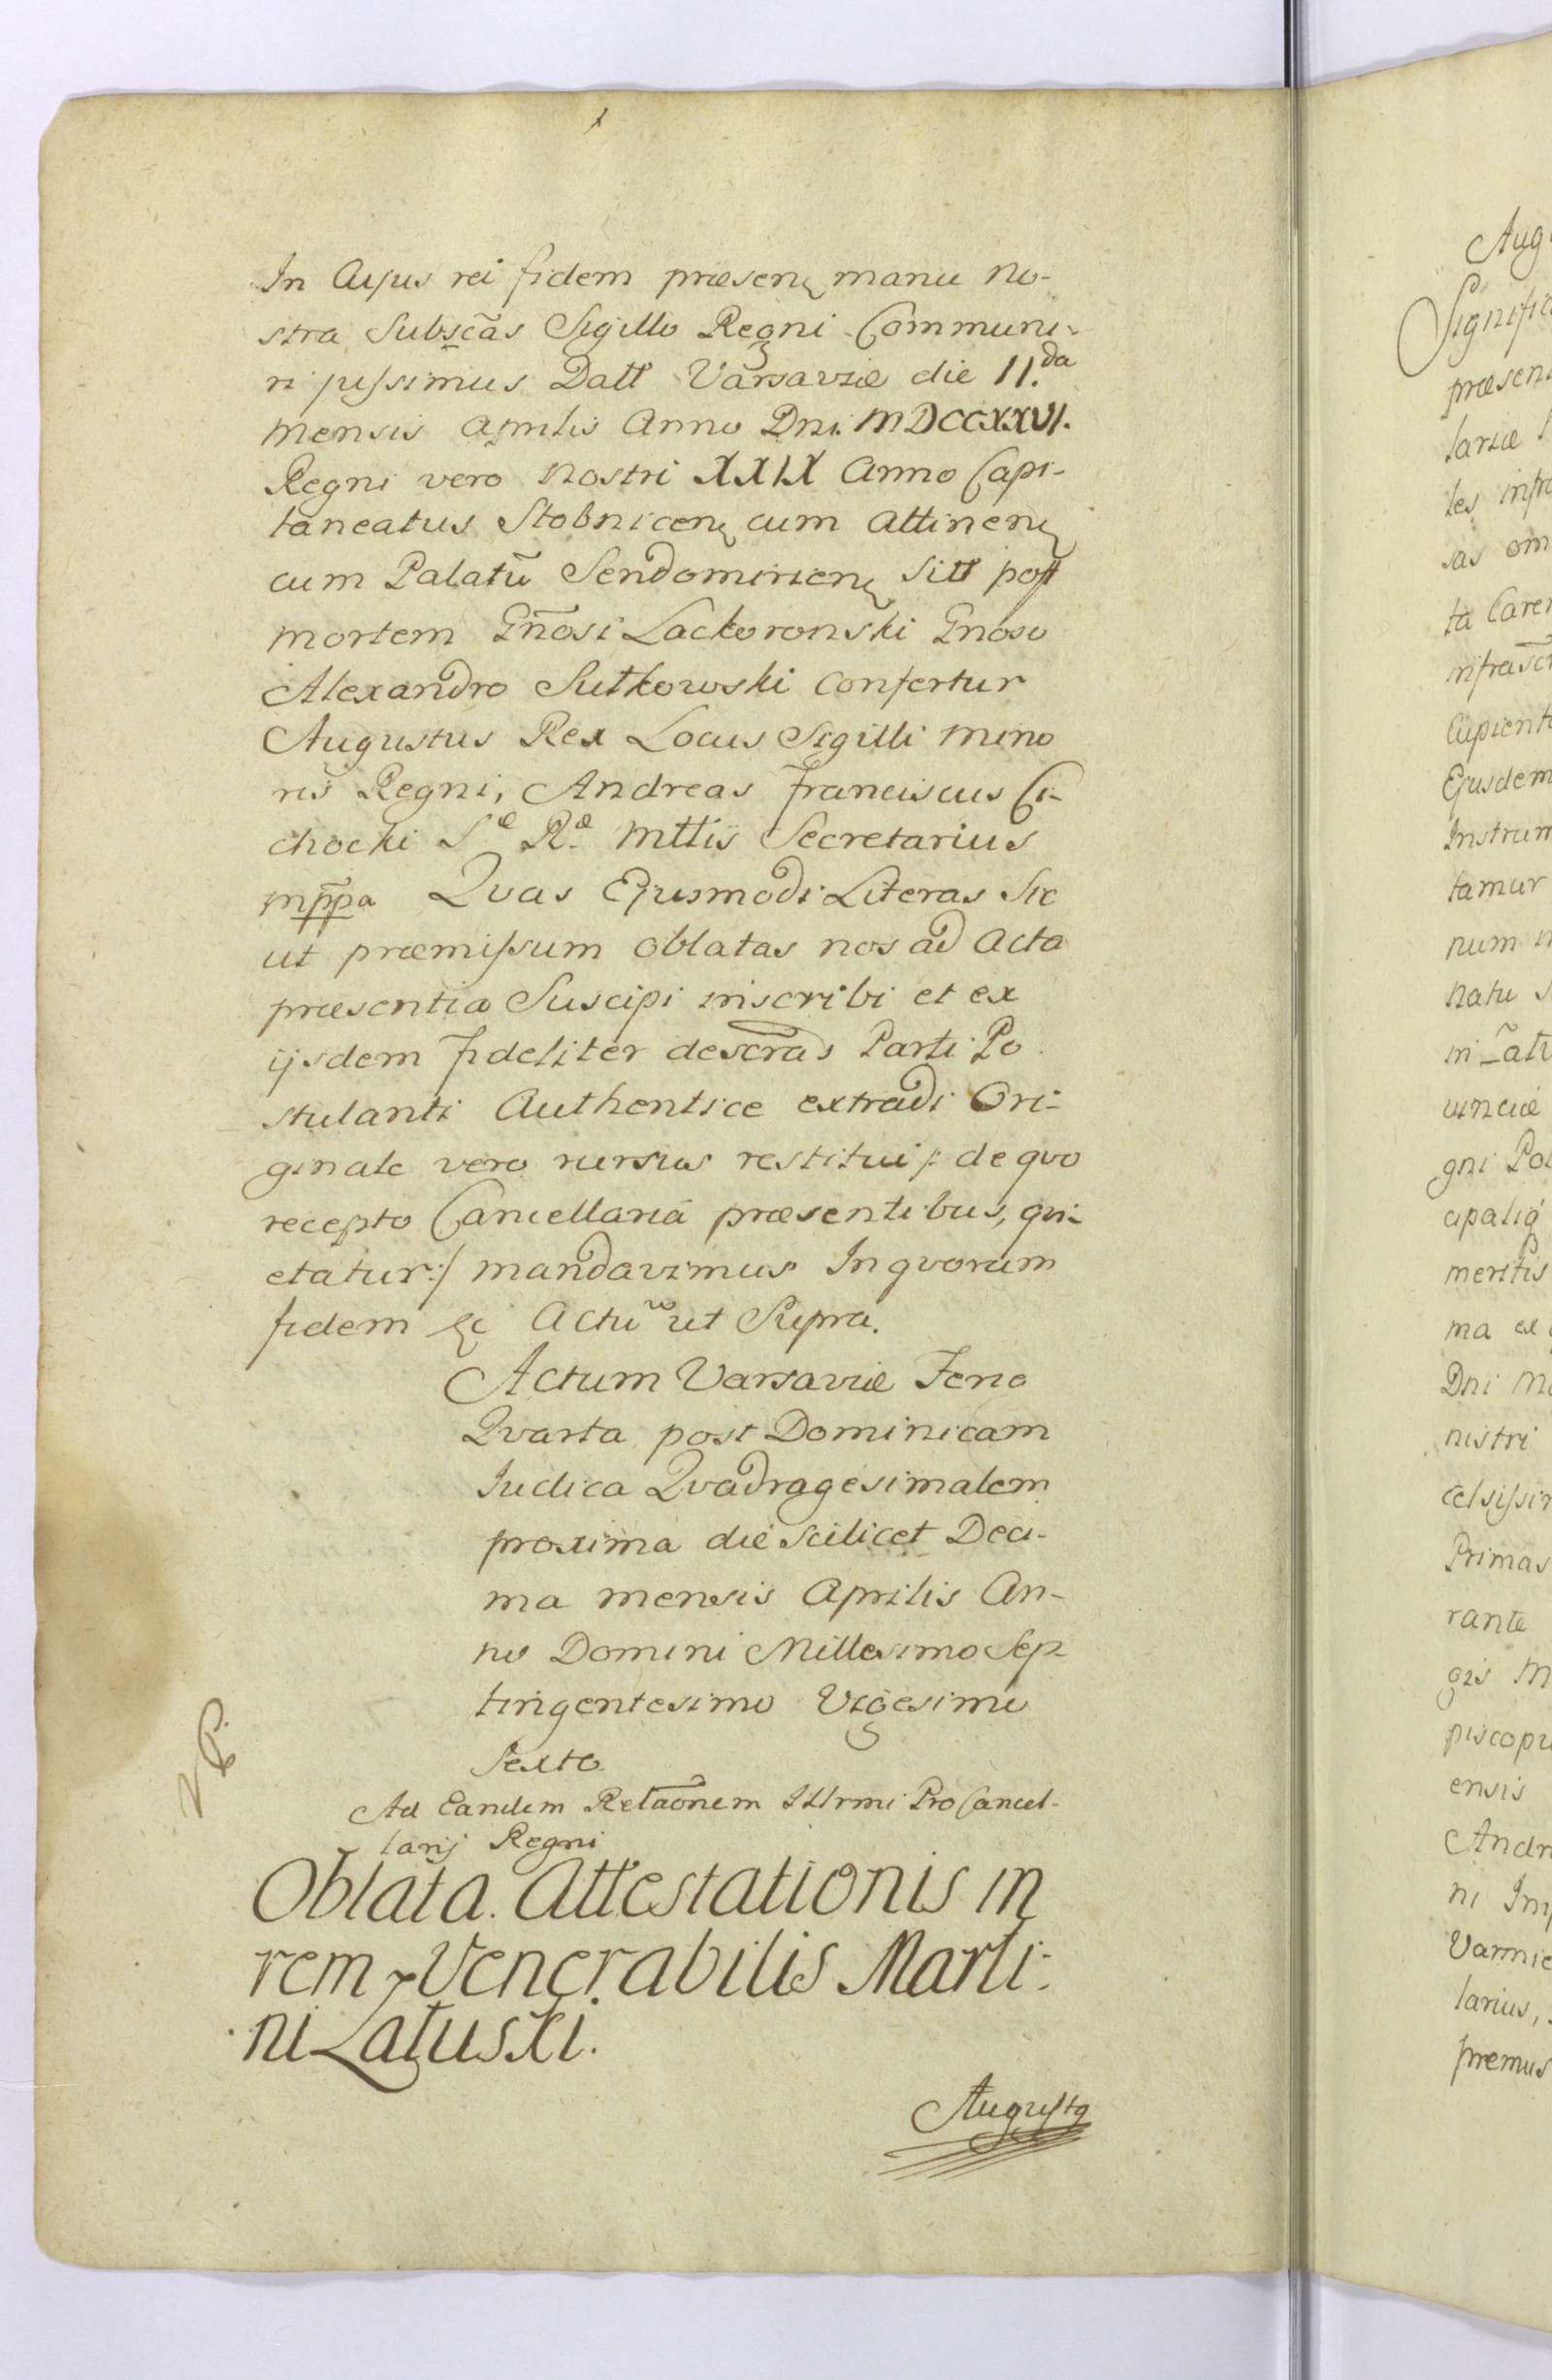 In Cujus rei fidem præsenꝫ manu no-
stra Subsc̃as Sigillo Regni Communi-
ri jussimus Datt Varsaviæ die 11.da
mensis Aprilis Anno Dni. MDCCXXVI.
Regni vero nostri XXIX Anno Capi-
taneatus Stobnicenꝫ cum attinenꝫ
cum Palatu͂ Sendomirienꝫ sitt post
mortem Gñosi Lackoronski Gnoso
Alexandro Sutkowski confertur
Augustus Rex Locus Sigilli mino
ris Regni, Andreas Franciscus Ci-
chocki Sæ Ræ Mttis Secretarius
mp̃pa Qvas Ejusmodi Literas sic
ut præmissum oblatas nos ad Acta
præsentia Suscipi inscribi et ex
ijsdem fideliter descr̃as Parti Po
stulanti Authentice extradi Ori-
ginale vero rursus restitui /: de qvo
recepto Cancellaria præsentibus, qvi-
etatur :/ mandavimus In qvorum
fidem &c Actu͂ ut Supra.
Actum Varsaviæ Feria
Qvarta post Dominicam
Judica Qvadragesimalem
proxima die scilicet Deci-
ma mensis Aprilis An-
no Domini Millesimo Sep-
tingentesimo Vigesimo
Sexto
Ad Eandem Relaõnem Illrmi ProCancel-
larij Regni
Oblata Attestationis in
rem Venerabilis Marti-
ni Łatuski.
Augustꝯ
Aug
Signific
præsen
lariæ
les infra
sas om
ta Carer
infrascr
Cupient
Ejusdem
Instrum
tamur
num
natu
in
vinciæ
gni Pol
cipaliq
meritis
ma
Dni
nistri
celsissi
Primas
rante
gis M
piscopu
ensis
Andr
ni Im
Varmie
larius,
premus